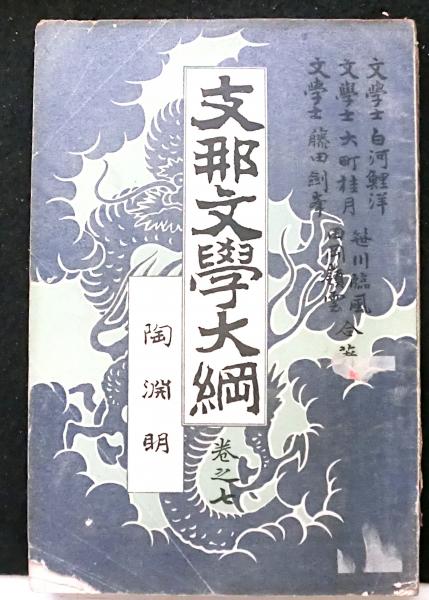 文學士 白河鯉洋 笹川臨風
文學士 大町桂月 田岡嶺雲 合著
文學士 藤田劍峯
支那文學大綱
卷之七
陶淵明